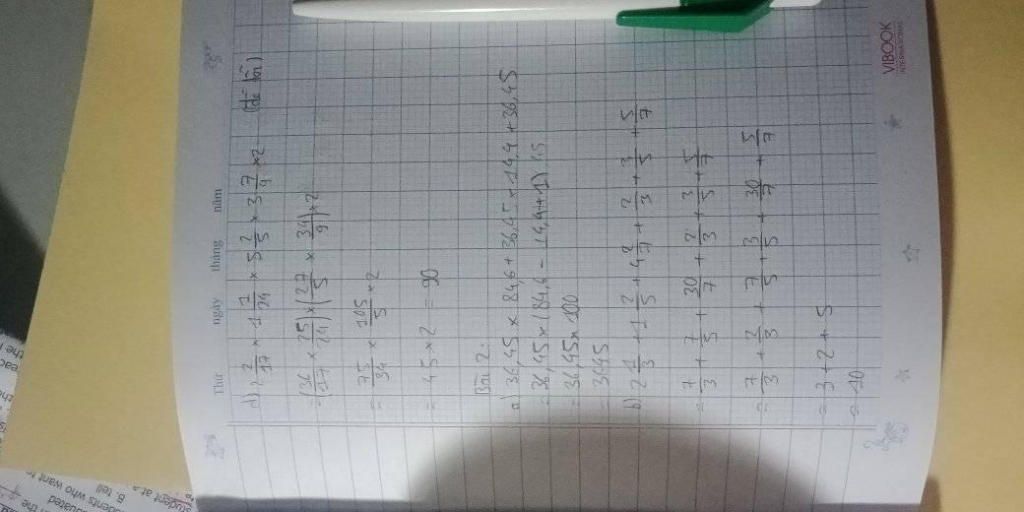 Thứ ngày tháng năm
d) 2 2/17 × 1 1/24 × 5 2/5 × 3 7/9 × 2 (đề lỗi)
= (36/17 × 25/24) × (27/5 × 34/9) × 2
= 75/34 × 105/5 × 2
= 45 × 2 = 90
Bài 2:
a) 36,45 × 84,6 + 36,45 × 14,4 + 36,45
= 36,45 × (84,6 - 14,4 + 1)
= 36,45 × 100
= 3645
b) 2 1/3 + 1 2/5 + 4 2/7 + 2/3 + 3/5 + 5/7
= 7/3 + 7/5 + 30/7 + 2/3 + 3/5 + 5/7
= 7/3 + 2/3 + 7/5 + 3/5 + 30/7 + 5/7
= 3 + 2 + 5
= 10
VIBOOK
INTERNATIONAL